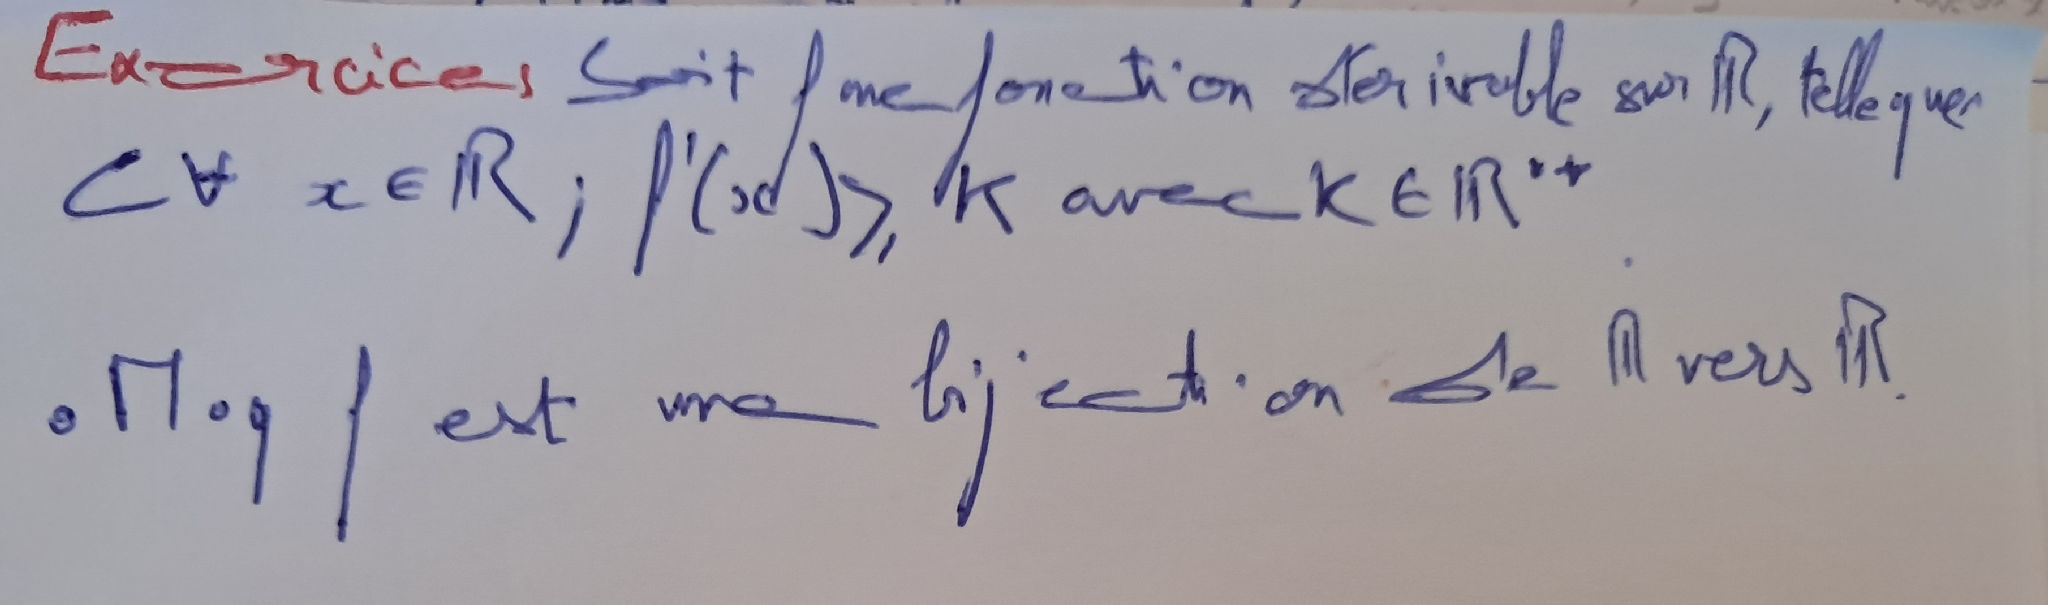 Exercices Soit f une fonction dérivable sur ℝ, telle que
(∀ x ∈ ℝ ; f'(x) ⩾ K avec K ∈ ℝ*+
• M.q f est une bijection de ℝ vers ℝ.